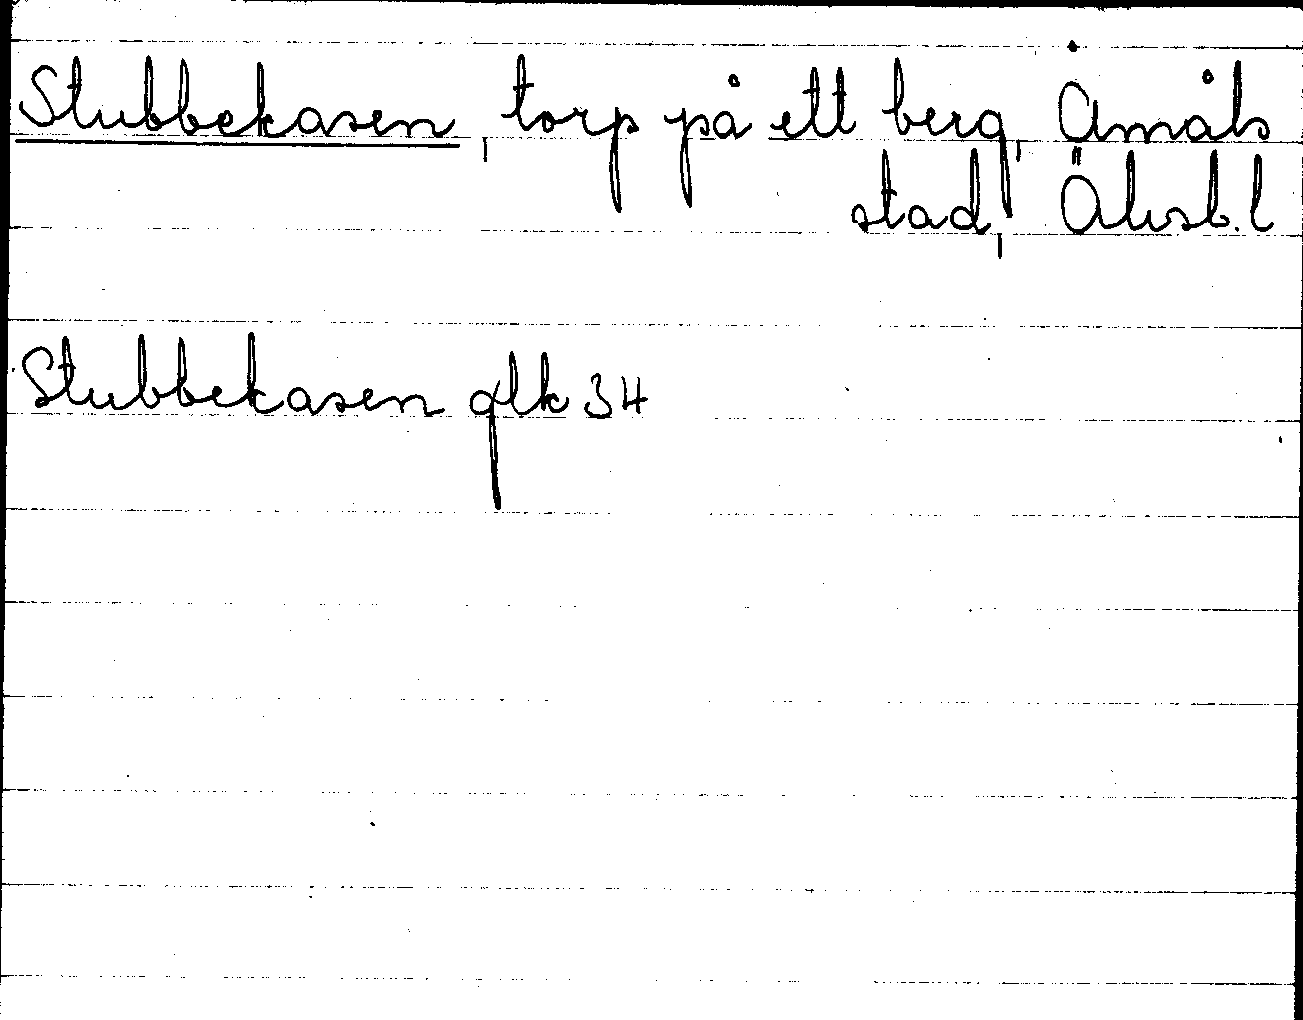 Stubbekasen, torp på ett berg, Åmåls
stad, Älvsb. l
Stubbekasen glk 34